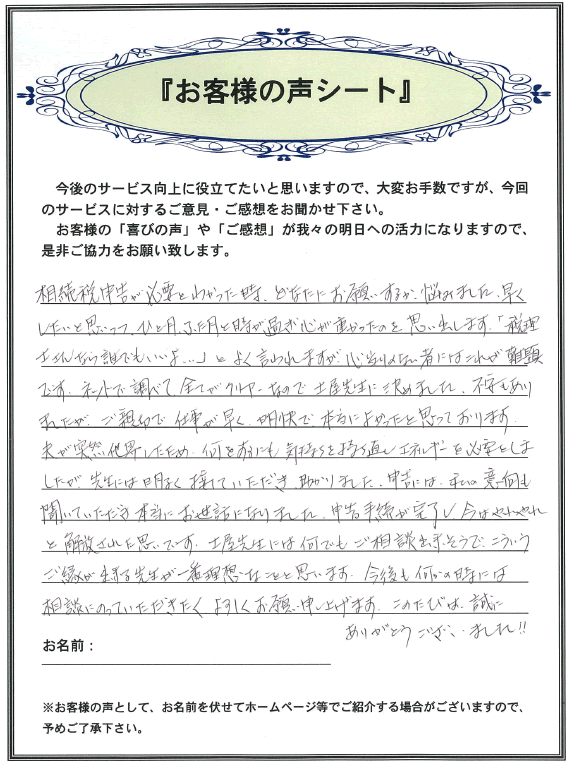 『お客様の声シート』
今後のサービス向上に役立てたいと思いますので、大変お手数ですが、今回
のサービスに対するご意見・ご感想をお聞かせ下さい。
お客様の「喜びの声」や「ご感想」が我々の明日への活力になりますので、
是非ご協力をお願い致します。
相続税申告が必要とわかった時、どなたにお願いするか、悩みました、早く
したいと思いつつ、ひと月、ふた月と時が過ぎ心が重かったのを思い出します。「税理
士さんなら誰でもいいよ...」とよく言われますが、心当りのない者にはこれが難題
です。ネットで調べて全てがクリアーなので土屋先生に決めました、不安もあり
ましたが、ご親切で仕事が早く、明快で本当によかったと思っております
夫が突然他界したため、何をするにも気持ちを持ち直しエネルギーを必要としま
したが先生には明るく接していただき助かりました、申告には、私の意向も
聞いていただき本当にお世話になりました、申告手続が完了し今はやれやれ
と解放された思いです。土屋先生には何でもご相談出来そうで、こういう
ご縁が出来る先生が一番理想なことと思います。今後も何かの時には
相談にのっていただきたくよろしくお願い申し上げます。このたびは、誠に
ありがとうございました!!
お名前：
※お客様の声として、お名前を伏せてホームページ等でご紹介する場合がございますので、
予めご了承下さい。